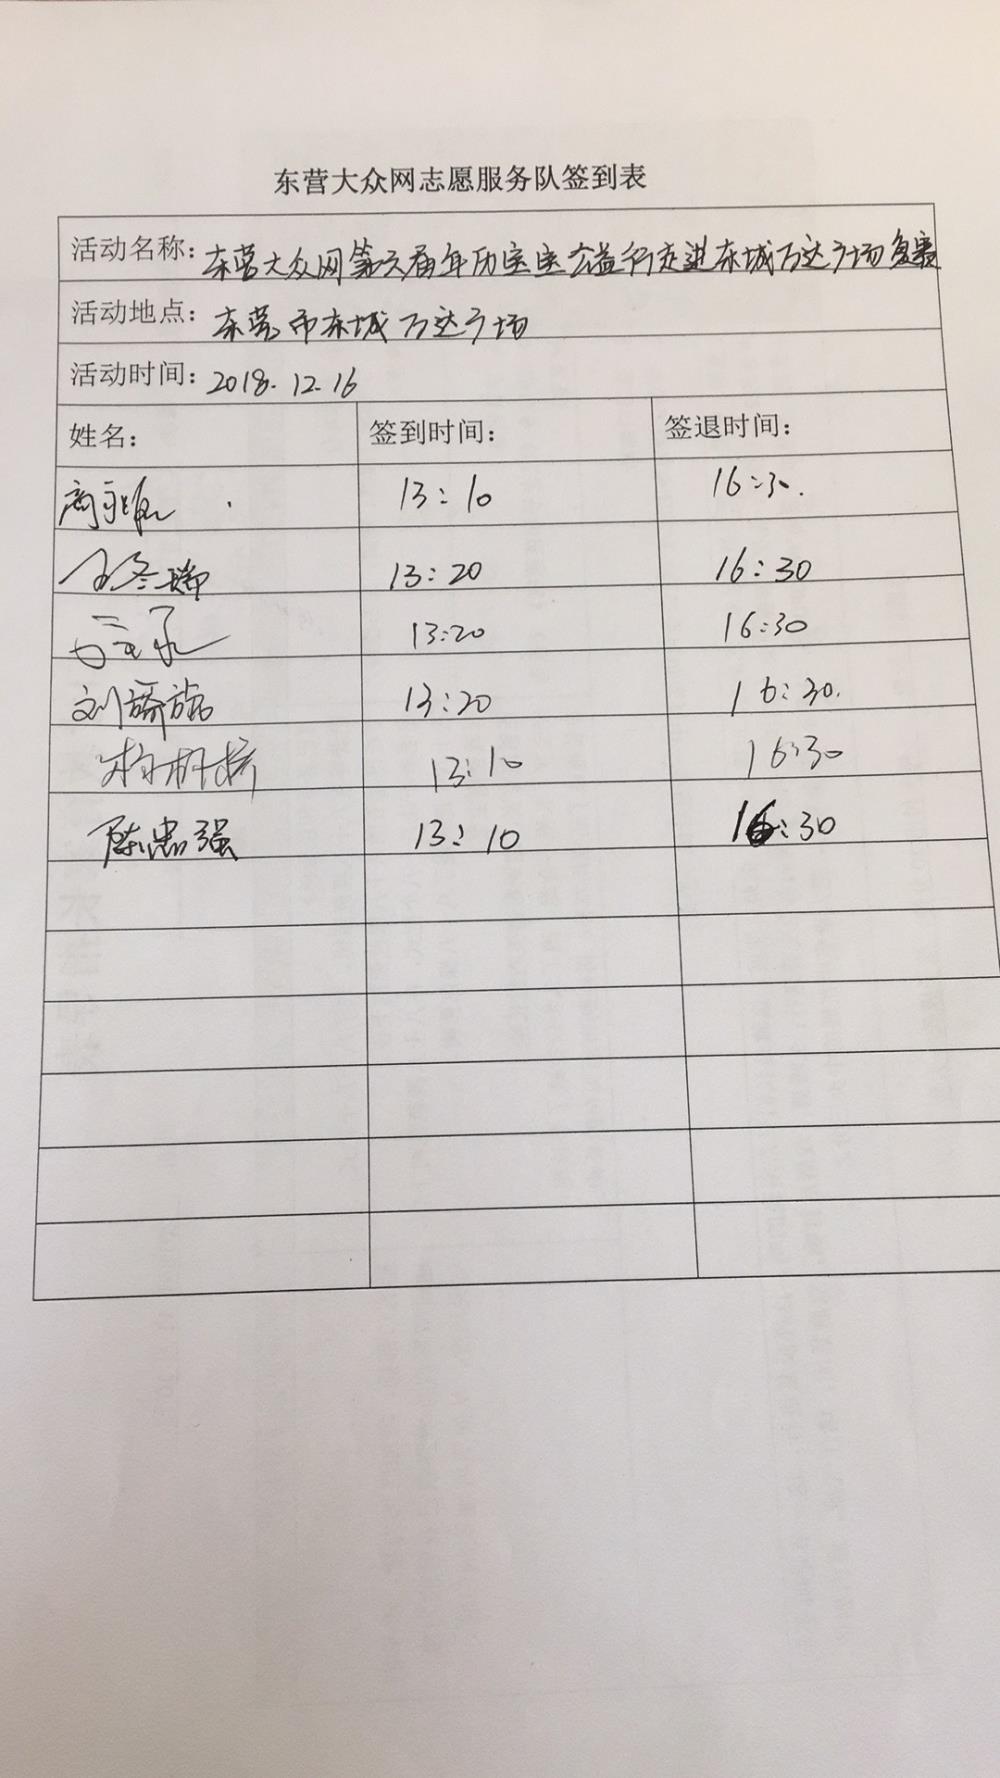 东营大众网志愿服务队签到表
活动名称：东营大众网第六届年历宝宝公益行走进东城万达广场复赛
活动地点：东营市东城万达广场
活动时间：2018.12.16
姓名： 签到时间： 签退时间：
13:10 16:30.
13:20 16:30
13:20 16:30
13:20 16:30.
13:10 16:30
陈忠强 13:10 16:30